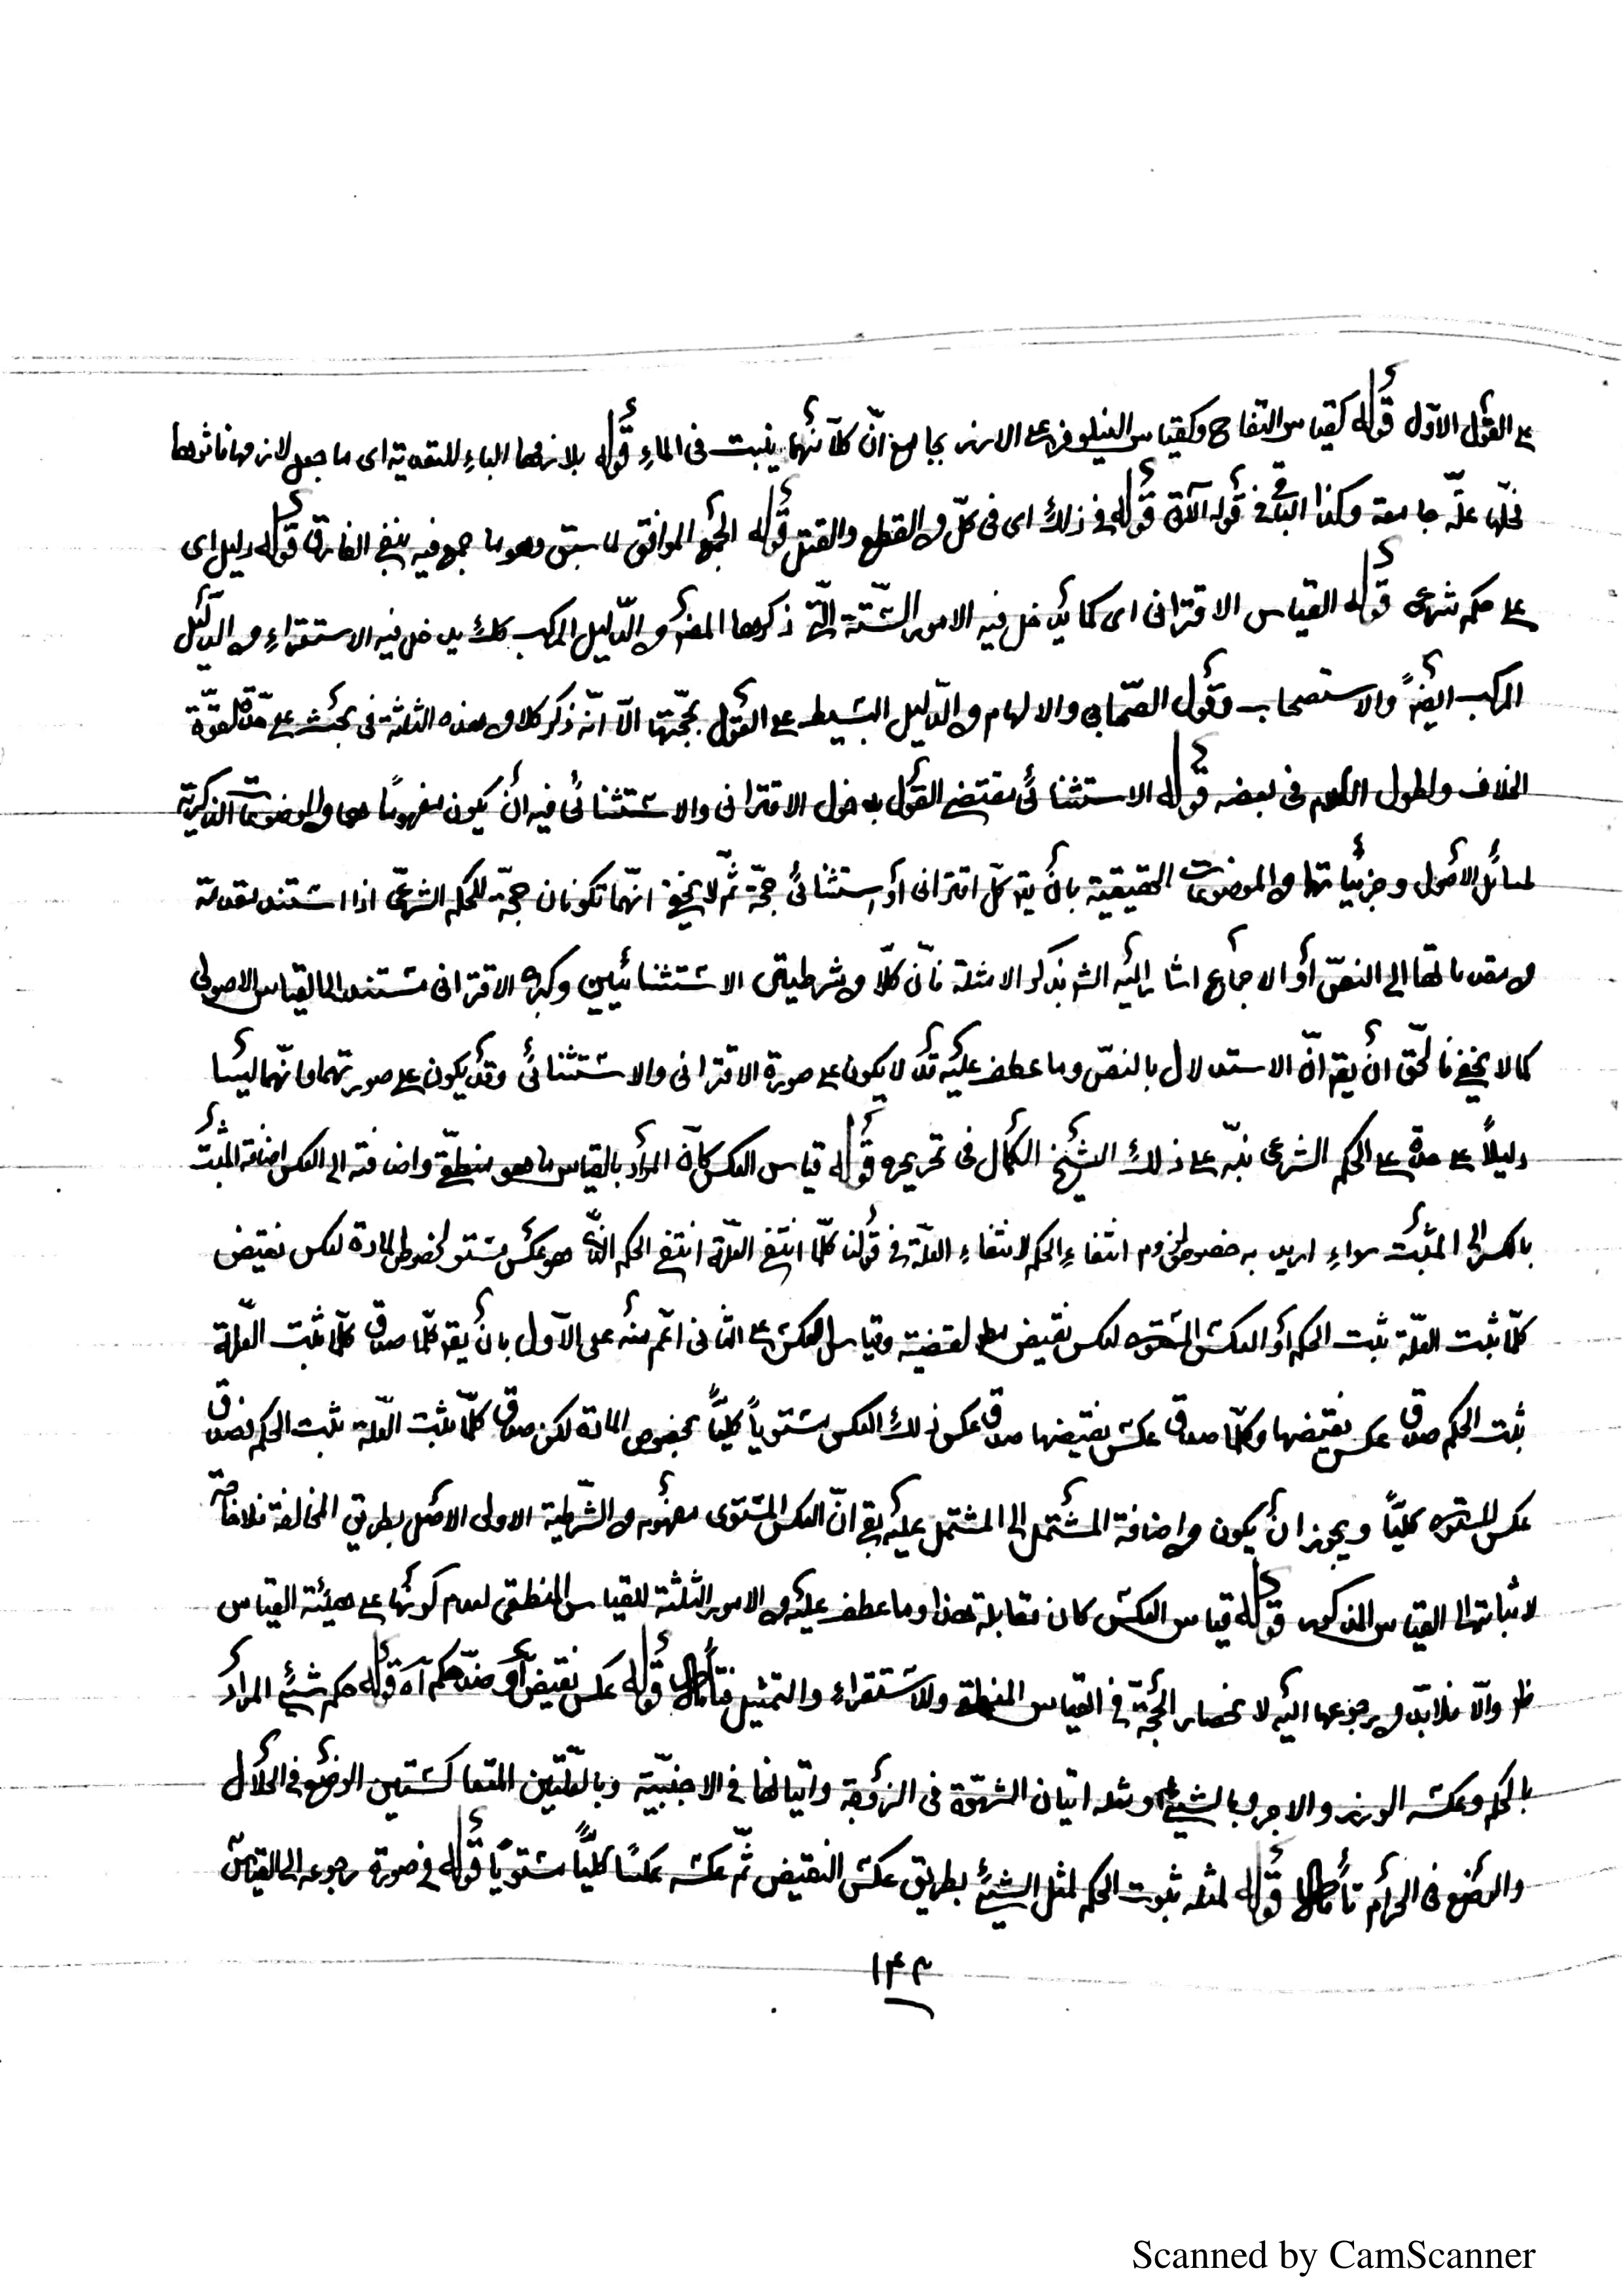 على القول الاوّل قوله كقياس التفاح وكقياس النيلوفر على الارز بجامع انّ كلّا منهما ينبت فى الماءِ قوله بلازمها الباء للتعدية اى ما جعل لازمها فاثرها
فحكمها علّة جامعة وكذا الباقى فى قوله الآتى قوله فى ذلك اى فى كلّ من القطع والقتل قوله الجمع الموافق لما سبق وهو ما جمع فيه بنفى الفارق قوله دليل اى
على حكم شرعى قوله القياس الاقترانى اى كما يدخل فيه الامور الستّة الّتى ذكرها المصـ من الدّليل المركب كذلك يدخل فيه الاستقراءِ من الدّليل
المركب ايضـً والاستصحاب وقول الصّحابى والالهام من الدّليل البسيط على القول بحجّتها الّا انّه ذكر كلا من هذه الثلثة فى بحث على حدة لقوّة
الخلاف ولطول الكلام فى بعضه قوله الاستثنائى مقتضى القول بدخول الاقترانى والاستثنائى فيه أن يكون مفهوما هما من الموضوعات الذكرية
لمسائل الاصول وجزئياتهما من الموضوعات الحقيقية بأن يقـ كلّ اقترانى أو استثنائى حجّة ثمّ لا يخفى انّهما تكونان حجّة للحكم الشرعىّ اذا استند مقدمة
من مقدماتها الى النصّ أو الاجماع اشار اليه الشـ بذكر الامثلة فانّ كلّا من شرطيتى الاستثنائيين وكبرى الاقترانى مستند الى القياس الاصولى
كما لا يخفى فالحقّ أن يقـ انّ الاستدلال بالنصّ وما عطف عليه قد لا يكون على صورة الاقترانى والاستثنائى وقد يكون على صورتهما وانّهما ليسا
دليلاً على حدة على الحكم الشرعى نبّه على ذلك الشيخ الكمال فى تحريره قوله قياس العكس كأنّ المراد بالقياس ما هو منطقىّ واضافته الى العكس اضافة المثبت
بالكسر الى المثبَت سواءِ اريد به خصوص لزوم انتفاءِ الحكم لانتفاءِ العلّة فى قولنا كلّما انتفى العلّة انتفى الحكم الّذى هو عكس مستو لخصوص المادة لعكس نقيض
كلّما ثبت العلّة ثبت الحكم أو العكس المستوى لعكس نقيض مطـ لقضية وقياس العكس على الثانى اعمّ منه على الاوّل بأن يقـ كلّما صدق كلّما ثبت العلّة
ثبت الحكم صدق عكس نقيضها وكلّما صدق عكس نقيضها صدق عكس ذلك العكس مستوياً كليّاً بخصوص المادة لكن صدق كلّما ثبت العلّة ثبت الحكم فصدق
عكس المستوى كليّاً ويجوز أن يكون من اضافة المشتمل الى المشتمل عليه بقى انّ العكس المستوى مفهوم من الشّرطية الاولى الاصل بطريق المخالفة فلا حاجة
لاثباتها الى القياس المذكور قوله قياس العكس كان مقابلة هذا وما عطف عليه من الامور الثلثة للقياس المنطقى لعدم كونها على هيئة القياس
ظـ والّا فلابدّ من رجوعها اليه لانحصار الحجّة فى القياس المنطقى والاستقراء والتمثيل فتأمّل قوله عكس نقيض أو ضدّ حكم آه قوله حكم شيءٍ المراد
بالحكم وعكسه الوزر والاجر وبالشيءِ ومثله اتيان الشهوة فى الزوجة واتيانها فى الاجنبيّة وبالعلّتين المتعاكستين الوضع فى الحلال
والوضع فى الحرام تأمّل قوله لمثله ثبوت الحكم لمثل الشيءِ بطريق عكس النقيض ثمّ عكسه عكسًا كليّاً مستويًا قوله فى صورة رجوعه الى القياس
١٤٣
Scanned by CamScanner